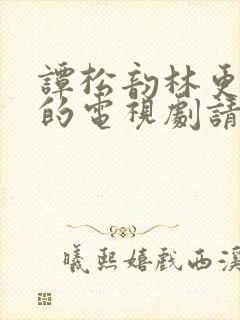 譚松韵林更
的電視劇請
曦熙嬉戲西溪